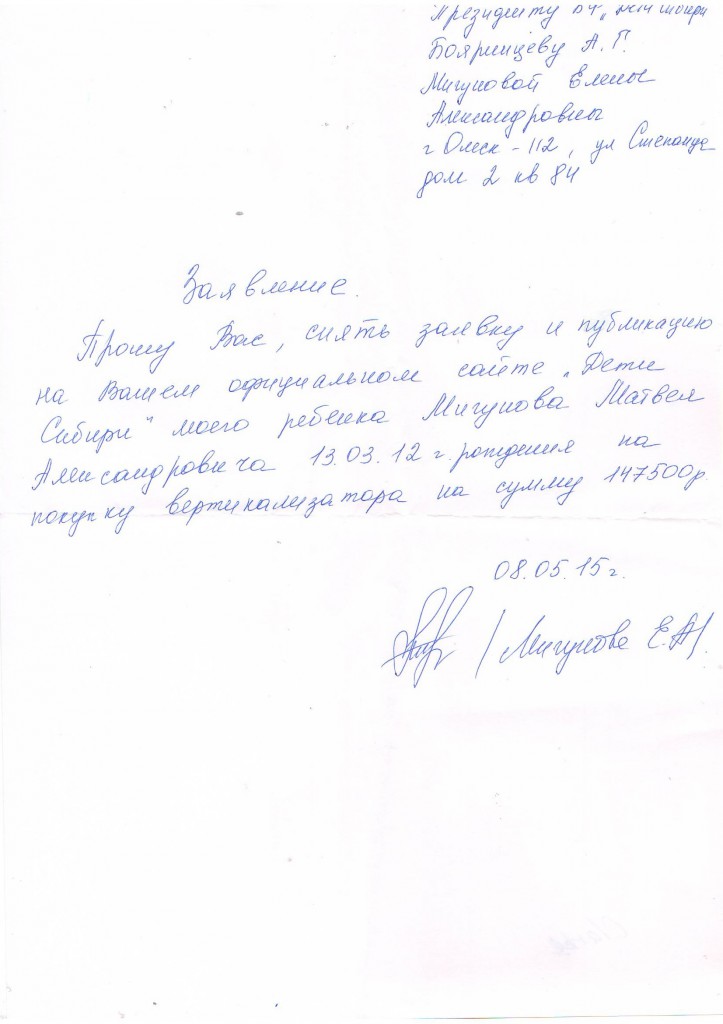 Президенту БФ „Дети Сибири
Бояринцеву А. Г.
Мигуновой Елены
Александровны
г Омск - 112, ул
дом 2 кв 84
Заявление.
Прошу Вас, снять заявку и публикацию
на Вашем официальном сайте „Дети
Сибири" моего ребенка Мигунова Матвея
Александровича 13.03.12 г. рождения на
покупку вертикализатора на сумму 147500р.
08.05.15г.
/Мигунова Е.А/.